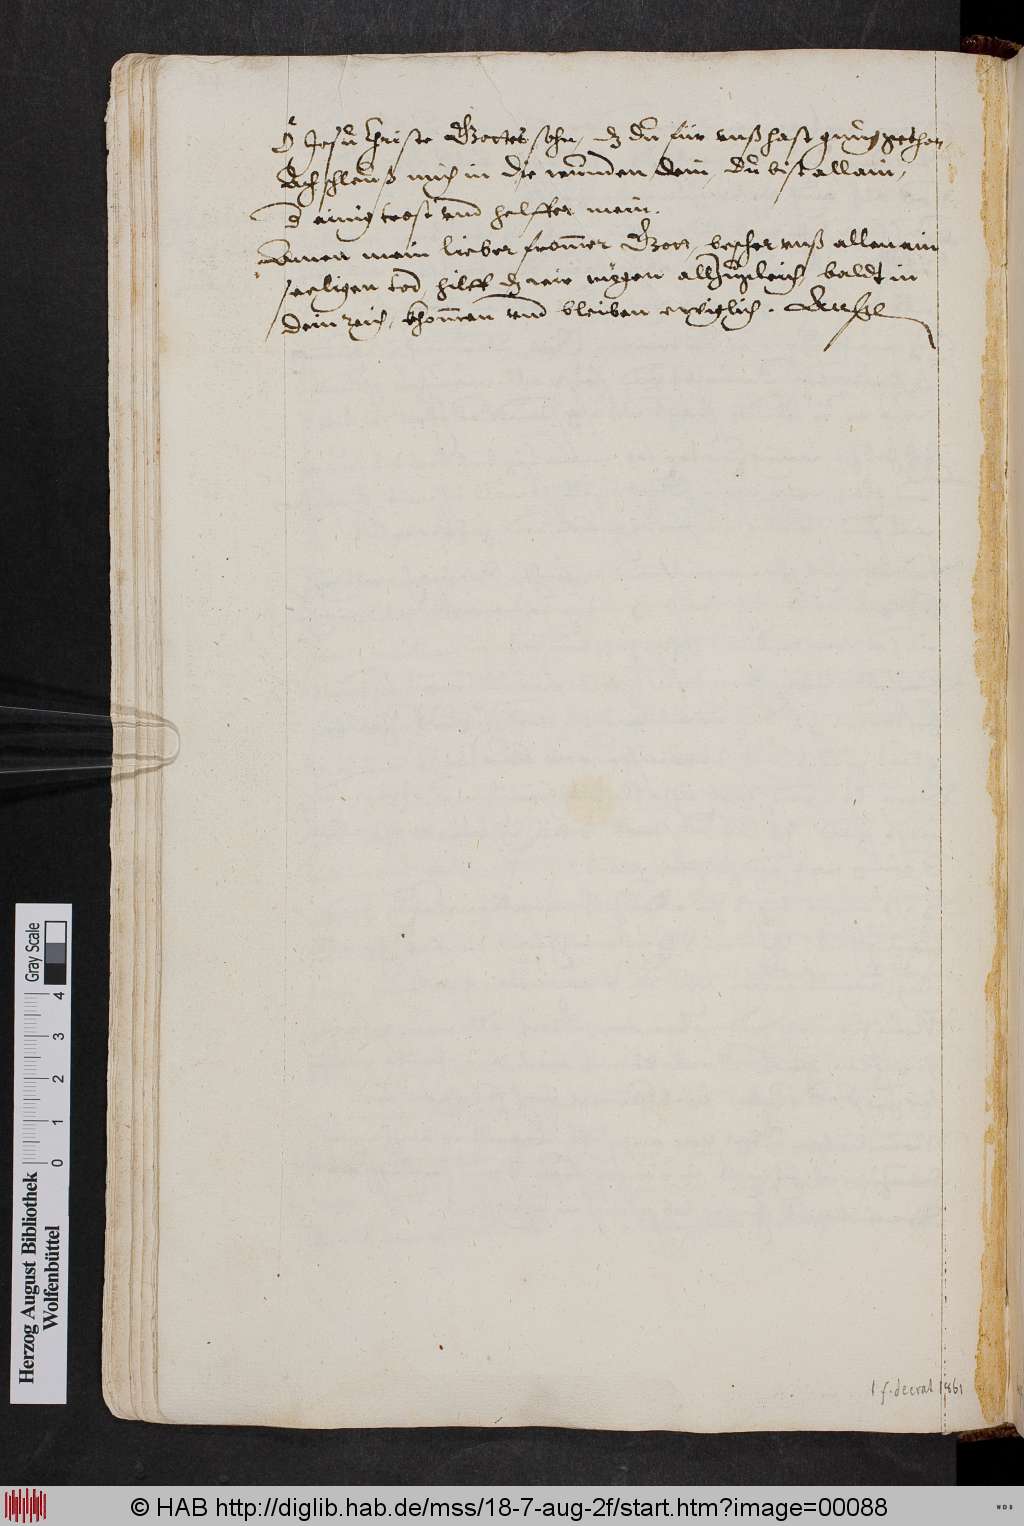 O Jesu Christe Gottes sohn, dz du für unß hast gnug gethon,
Ach schleuß mich in die wunden dein, Du bist allain,
d ainig trost und helffer mein.
Amen mein lieber frommer Gott, bescher unß allen ain
seeligen tod, hilff dz wir mögen allzugleich, baldt in
dein reich, khommen und bleiben ewiglich.
1 f. deerat 1861
Gray Scale
4
3
2
1
0
Herzog August Bibliothek
Wolfenbüttel
© HAB http://diglib.hab.de/mss/18-7-aug-2f/start.htm?image=00088